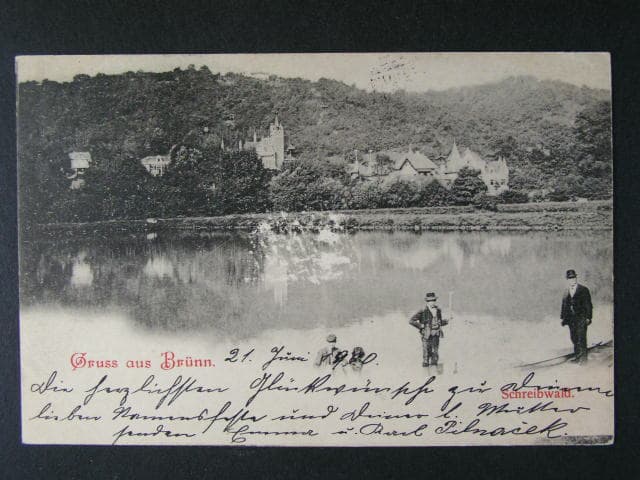 Gruss aus Brünn. 21. Juni 1900
Schreibwald.
Die herzlichsten Glückwünsche zu Deinem
lieben Namensfeste und Deiner l. Mutter
senden Emma u. Karl Pilnaček.